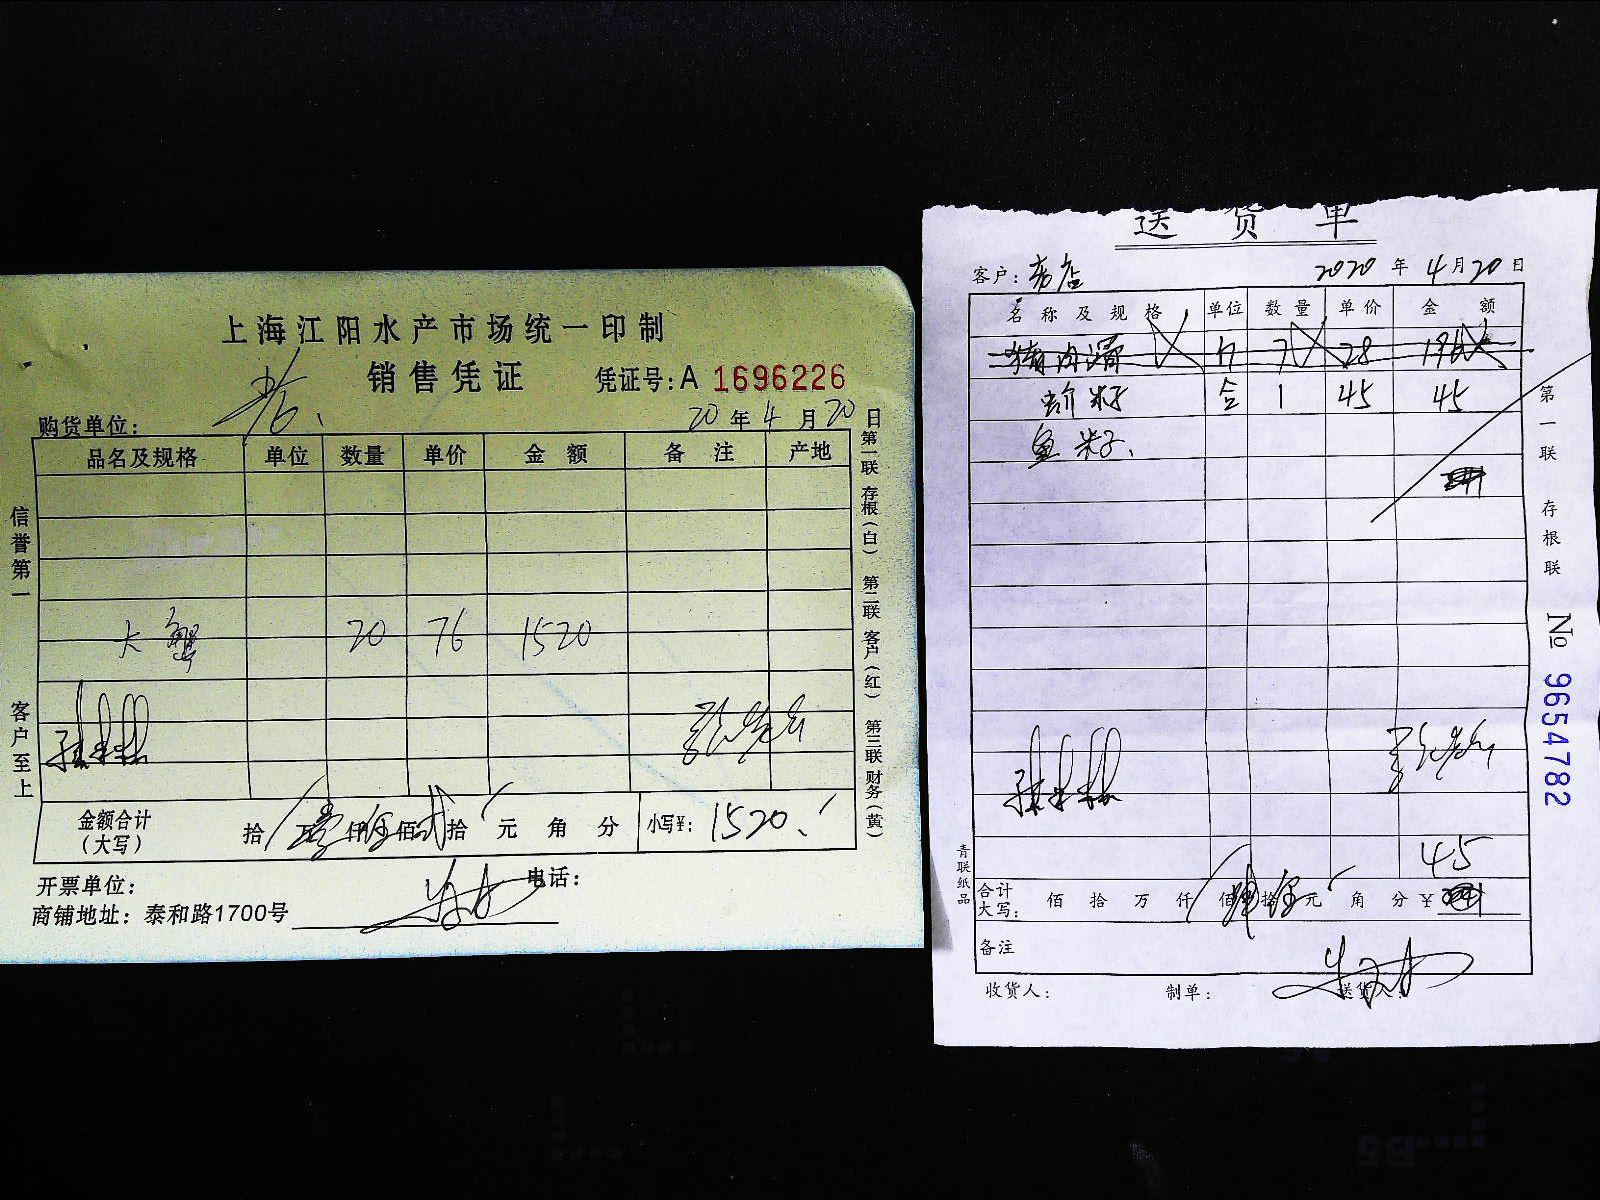 上海江阳水产市场统一印制
销售凭证 凭证号：A 1696226
购货单位： 20年4月20日
品名及规格 单位 数量 单价 金额 备注 产地
大蟹 20 76 1520
金额合计（大写） 拾 壹仟伍佰贰拾元 角 分 小写¥： 1520
开票单位： 电话：
商铺地址：泰和路1700号
信誉第一 客户至上
第一联 存根（白） 第二联 客户（红） 第三联 财务（黄）
送货单
客户： 老店 2020年4月20日
名称及规格 单位 数量 单价 金额
7 28 196
籽 合 1 45 45
鱼籽
45
合计大写： 佰 拾 万 仟 佰 肆拾伍元 角 分 ¥
备注
收货人： 制单： 送货人：
第一联 存根联 № 9654782
青联纸品